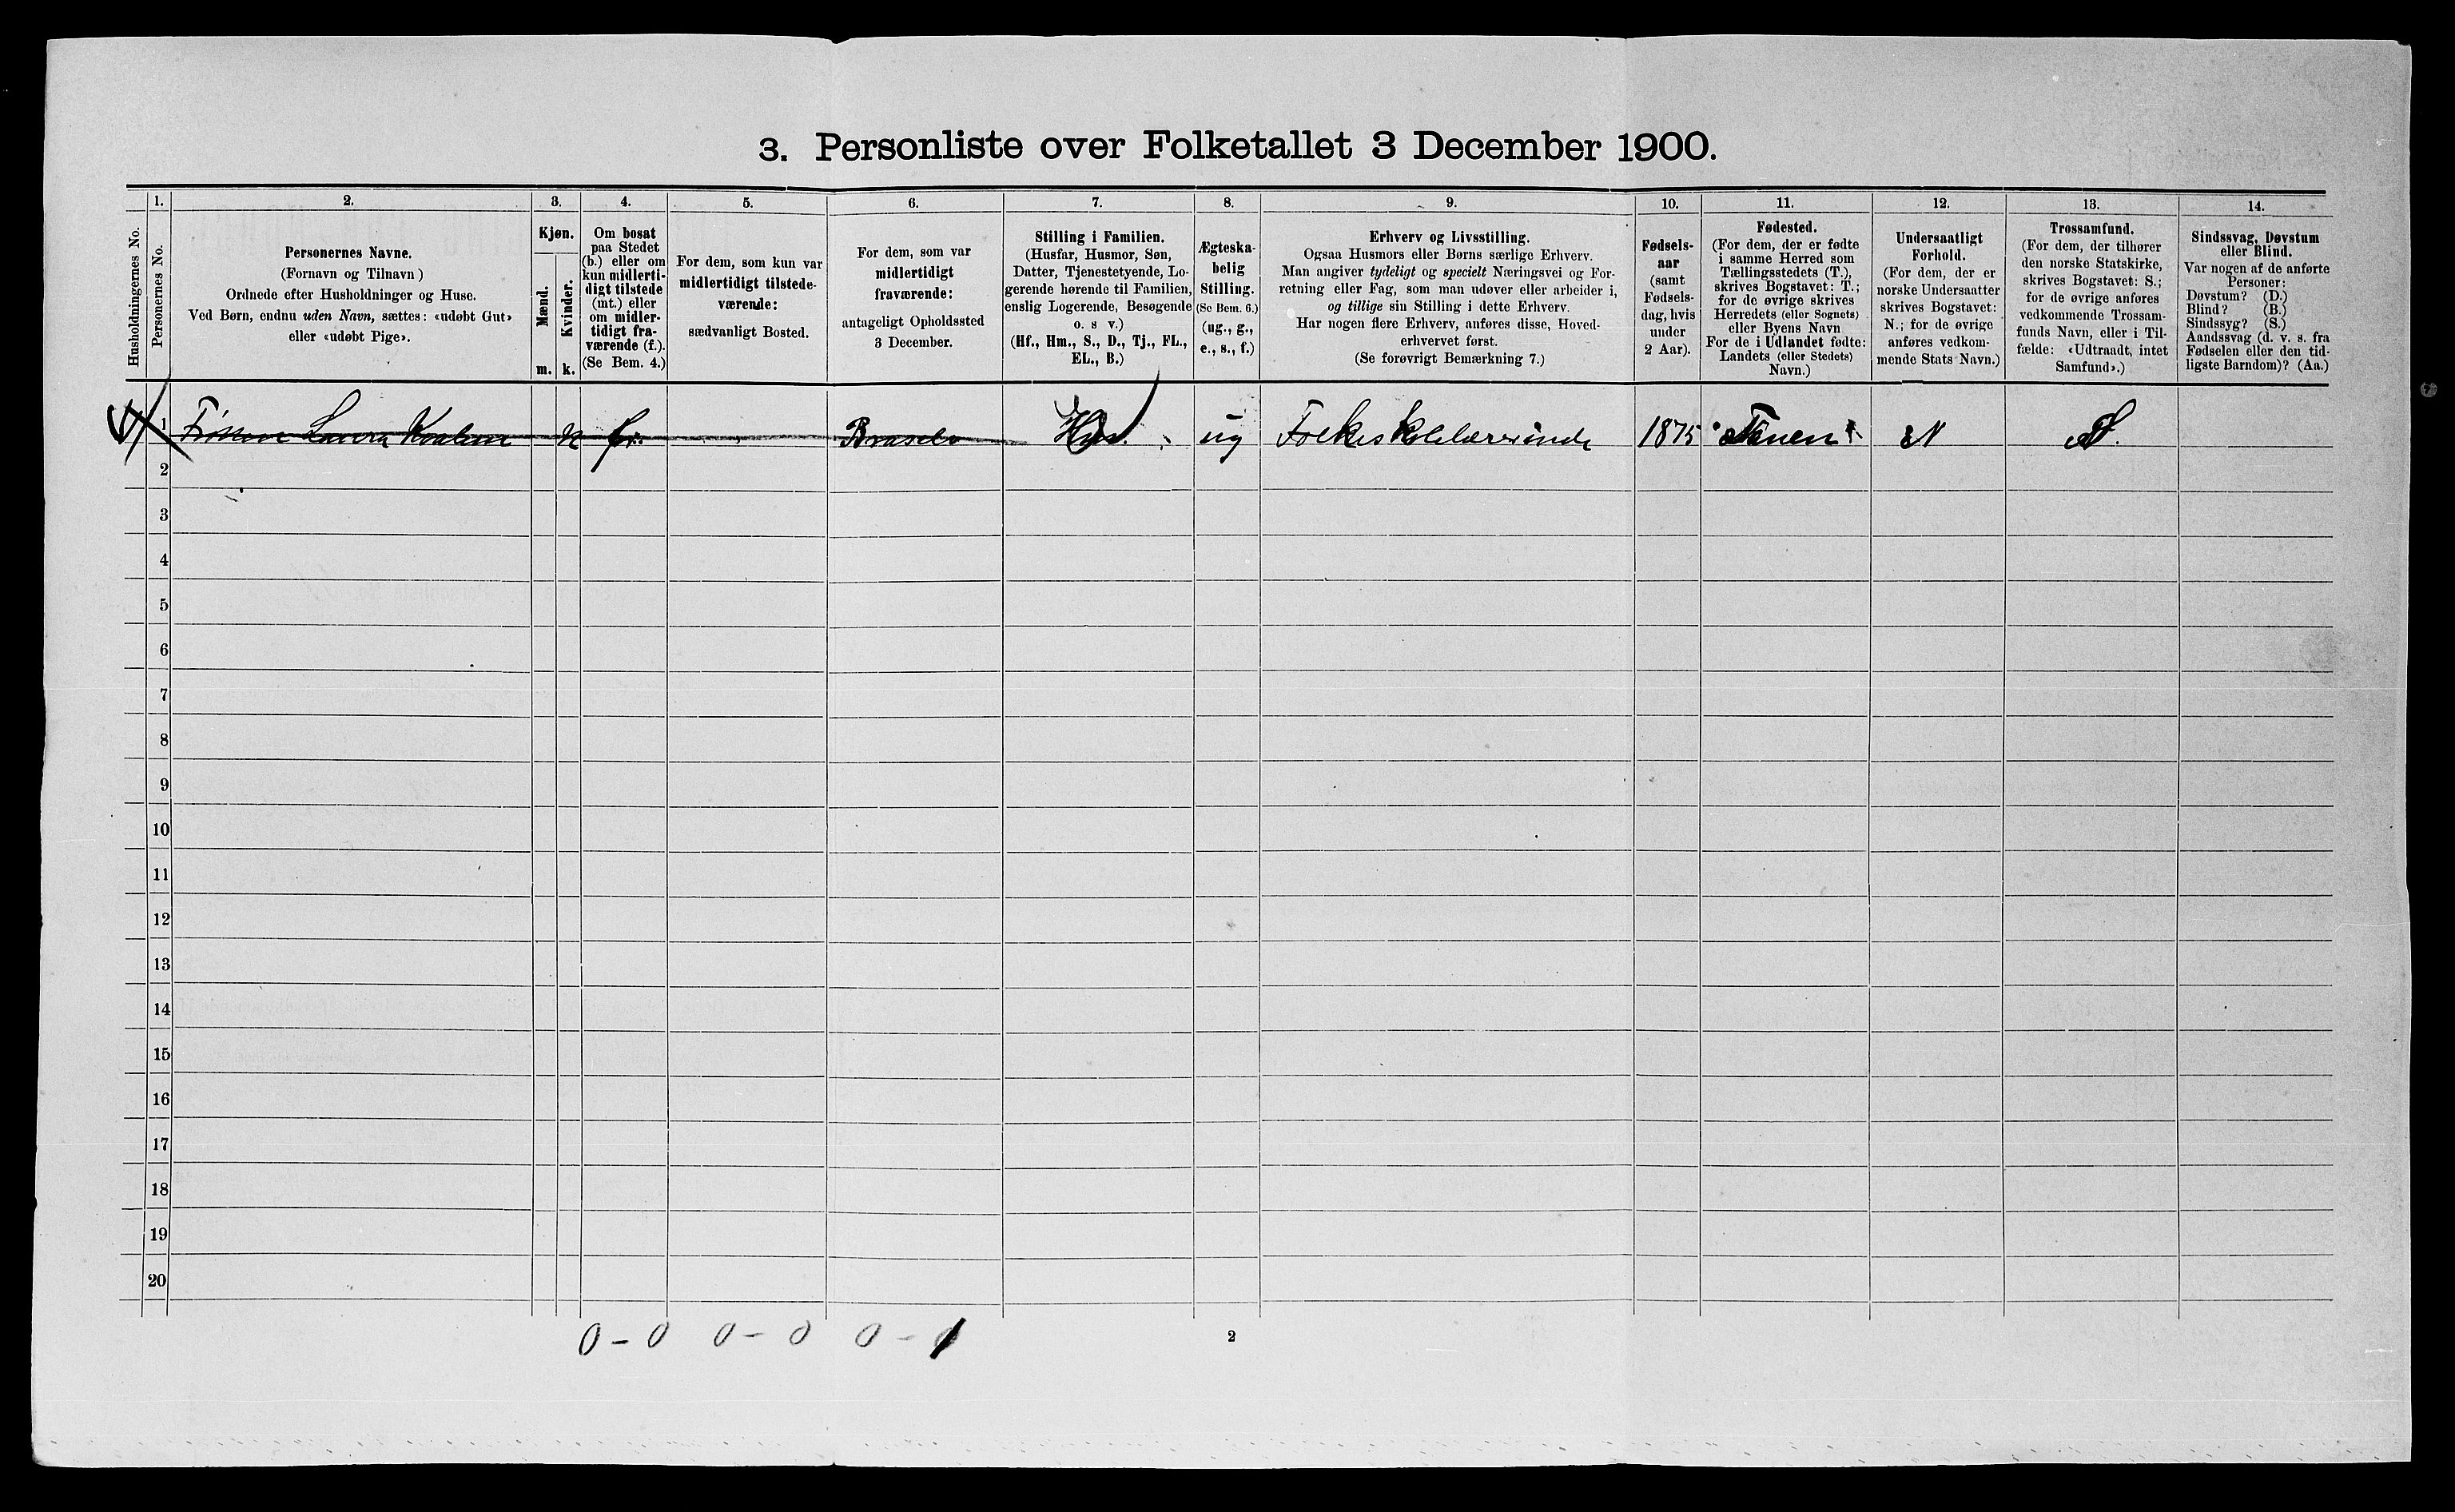 3. Personliste over Folketallet 3 December 1900.
Husholdningernes No.
1.
Personernes No.
2.
Personernes Navne.
(Fornavn og Tilnavn)
Ordnede efter Husholdninger og Huse.
Ved Børn, endnu uden Navn, sættes: «udøbt Gut»
eller «udøbt Pige».
3.
Kjøn.
Mænd.
m.
Kvinder.
k.
4.
Om bosat
paa Stedet
(b.) eller om
kun midlerti-
digt tilstede
(mt.) eller
om midler-
tidigt fra-
værende (f.).
(Se Bem. 4.)
5.
For dem, som kun var
midlertidigt tilstede-
værende:
sædvanligt Bosted.
6.
For dem, som var
midlertidigt
fraværende:
antageligt Opholdssted
3 December.
7.
Stilling i Familien.
(Husfar, Husmor, Søn,
Datter, Tjenestetyende, Lo-
gerende hørende til Familien,
enslig Logerende, Besøgende
o. s v.)
(Hf., Hm., S., D., Tj., FL.,
EL., B.)
8.
Ægteska-
belig
Stilling.
(Se Bem. 6.)
(ug., g.,
e., s., f.)
9.
Erhverv og Livsstilling.
Ogsaa Husmors eller Børns særlige Erhverv.
Man angiver tydeligt og specielt Næringsvei og For-
retning eller Fag, som man udøver eller arbeider i,
og tillige sin Stilling i dette Erhverv.
Har nogen flere Erhverv, anføres disse, Hoved-
erhvervet først.
(Se forøvrigt Bemærkning 7.)
10.
Fødsels-
aar
(samt
Fødsels-
dag, hvis
under
2 Aar).
11.
Fødested.
(For dem, der er fødte
i samme Herred som
Tællingsstedets (T.),
skrives Bogstavet: T.;
for de øvrige skrives
Herredets (eller Sognets)
eller Byens Navn
For de i Udlandet fødte:
Landets (eller Stedets)
Navn.)
12.
Undersaatligt
Forhold.
(For dem, der er
norske Undersaatter
skrives Bogstavet:
N.; for de øvrige
anføres vedkom-
mende Stats Navn.)
13.
Trossamfund.
(For dem, der tilhører
den norske Statskirke,
skrives Bogstavet: S.;
for de øvrige anføres
vedkommende Trossam-
funds Navn, eller i Til-
fælde: «Udtraadt, intet
Samfund».)
14.
Sindssvag, Døvstum
eller Blind.
Var nogen af de anførte
Personer:
Døvstum? (D.)
Blind? (B.)
Sindssyg? (S.)
Aandssvag (d. v. s. fra
Fødselen eller den tid-
ligste Barndom)? (Aa.)
1 Laura ug Folkeskolelærerinde 1875 N S.
2
3
4
5
6
7
8
9
10
11
12
13
14
15
16
17
18
19
20
0 - 0 0 - 0 0 - 1
2